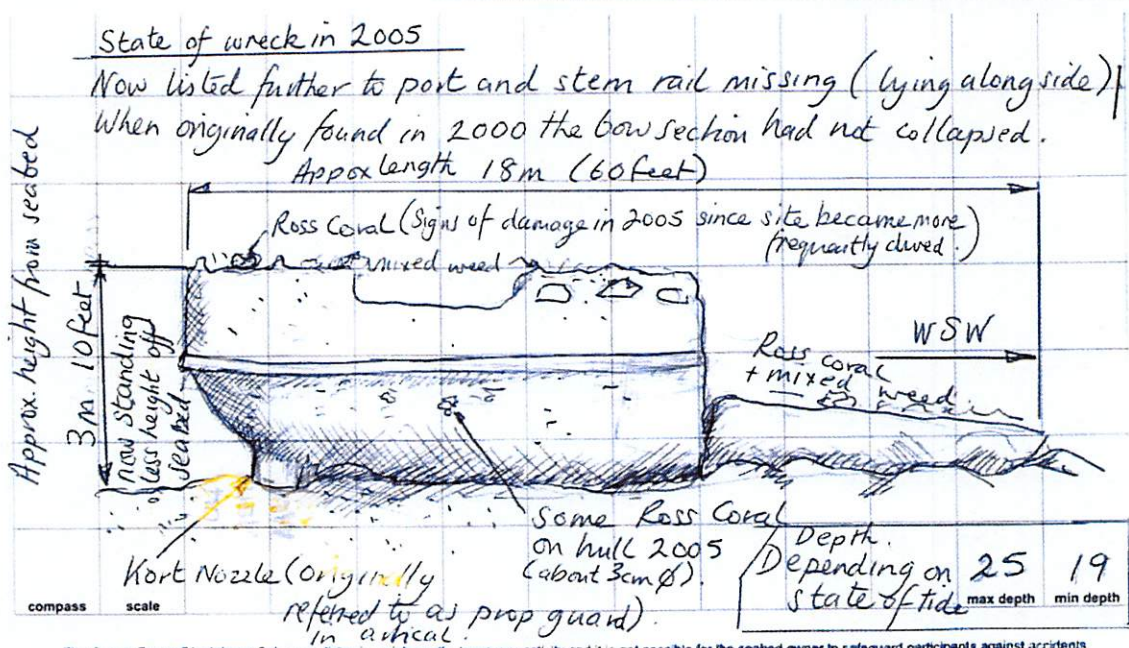 State of wreck in 2005
Now listed further to port and stem rail missing (lying alongside)
When originally found in 2000 the bow section had not collapsed.
Approx length 18m (60feet)
Ross Coral (Signs of damage in 2005 since site became more
frequently dived.)
mixed weed
Approx. height from seabed
3m 10feet
now standing
less height off
seabed
WSW
Ross coral
+ mixed
weed
some Ross Coral
on hull 2005
(about 3cm ϕ).
Kort Nozzle (originally
referred to as prop guard)
in artical.
Depth.
Depending on
state of tide
25 max depth
19 min depth
compass scale